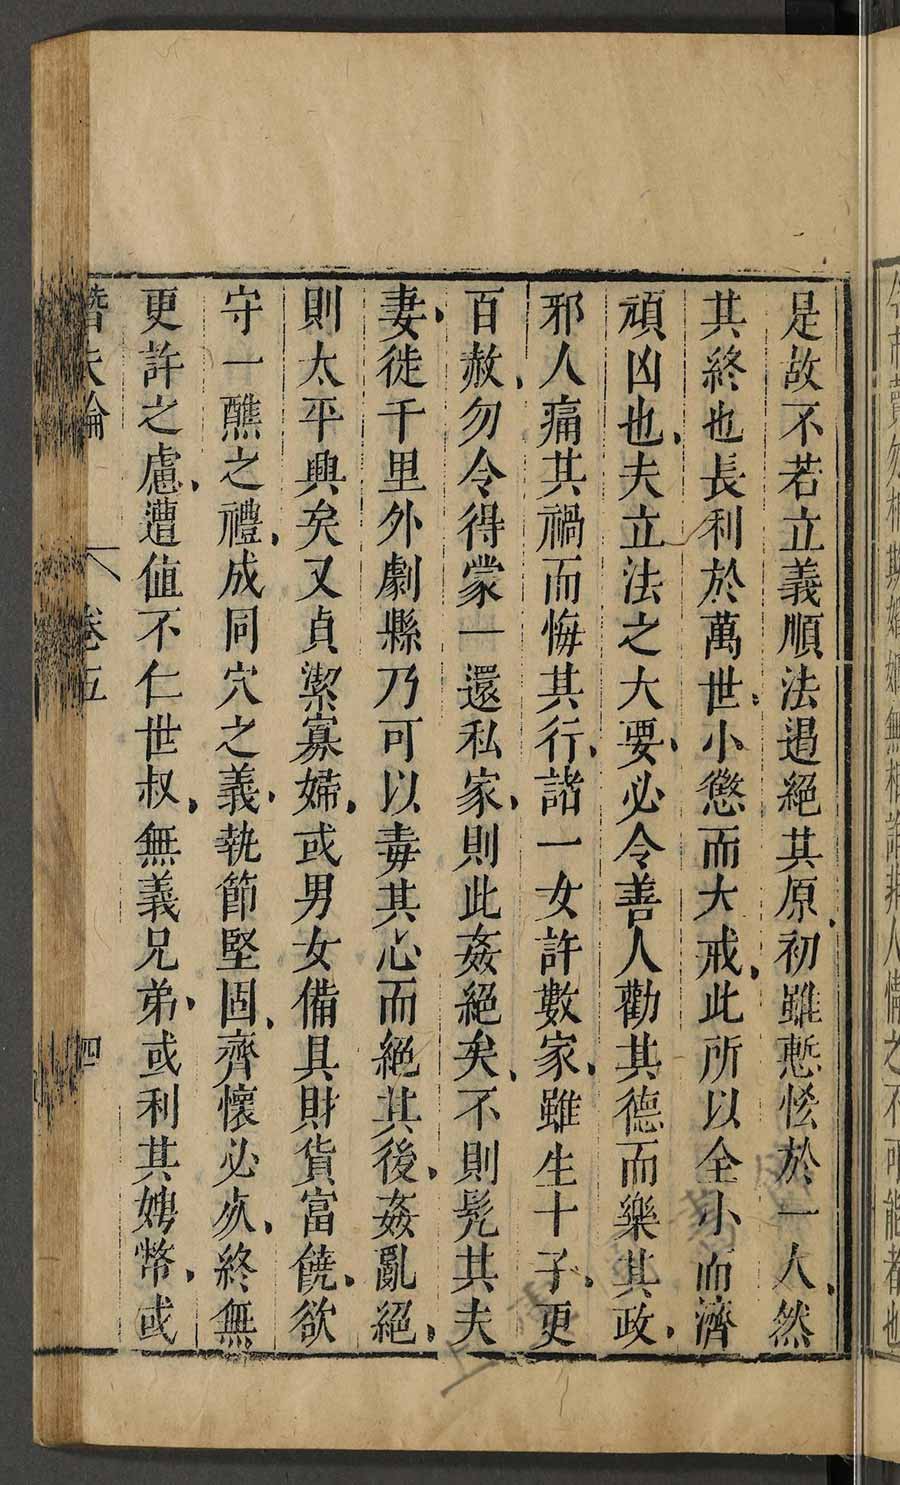 賣勿相欺婚姻無相詐非人情之不可能者也
是故不若立義順法遏絕其原初雖慙恡於一人然
其終也長利於萬世小懲而大戒此所以全小而濟
頑凶也夫立法之大要必令善人勸其德而樂其政
邪人痛其禍而悔其行諸一女許數家雖生十子更
百赦勿令得蒙一還私家則此姦絕矣不則髡其夫
妻徙千里外劇縣乃可以毒其心而絕其後姦亂絕
則太平興矣又貞潔寡婦或男女備具財貨富饒欲
守一醮之禮成同穴之義執節堅固齊懷必死終無
更許之慮遭值不仁世叔無義兄弟或利其娉幣或
潛夫論 卷五 四